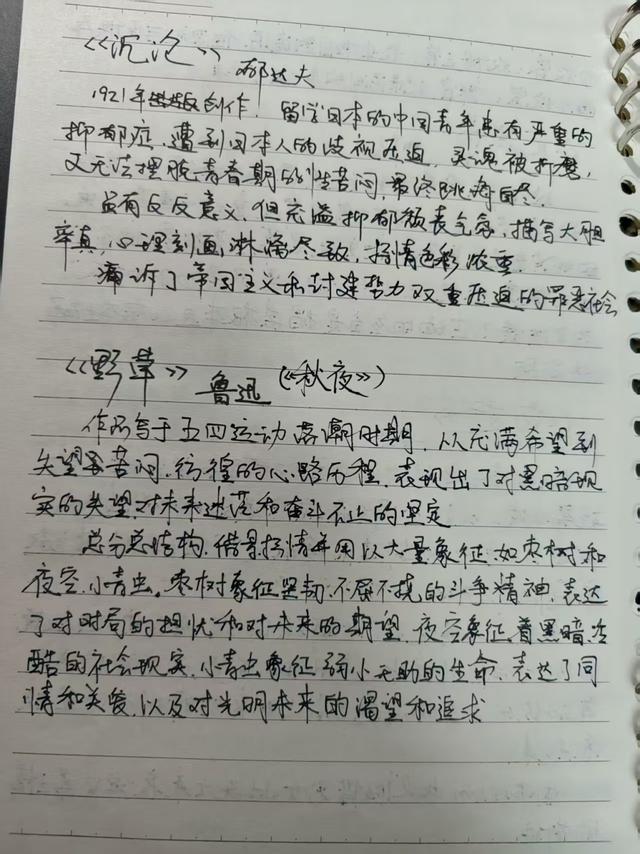 《沉沦》 郁达夫
1921年创作. 留学日本的中国青年患有严重的
抑郁症, 遭到日本人的歧视压迫, 灵魂被折磨,
又无法摆脱青春期的性苦闷, 最终跳海自尽.
虽有反反意义, 但充溢抑郁颓丧气息, 描写大胆
率真, 心理刻画淋漓尽致, 抒情色彩浓重.
痛诉了帝国主义和封建势力双重压迫的罪恶社会
《野草》 鲁迅 (《秋夜》)
作品写于五四运动落潮时期, 从充满希望到
失望 苦闷, 彷徨的心路历程, 表现出了对黑暗现
实的失望, 对未来迷茫和奋斗不止的坚定
总分总结构, 借景抒情并用以大量象征, 如枣树和
夜空, 小青虫。枣树象征坚韧, 不屈不挠的斗争精神, 表达
了对时局的担忧和对未来的期望, 夜空象征着黑暗冷
酷的社会现实, 小青虫象征弱小无助的生命, 表达了同
情和关爱, 以及对光明未来的渴望和追求